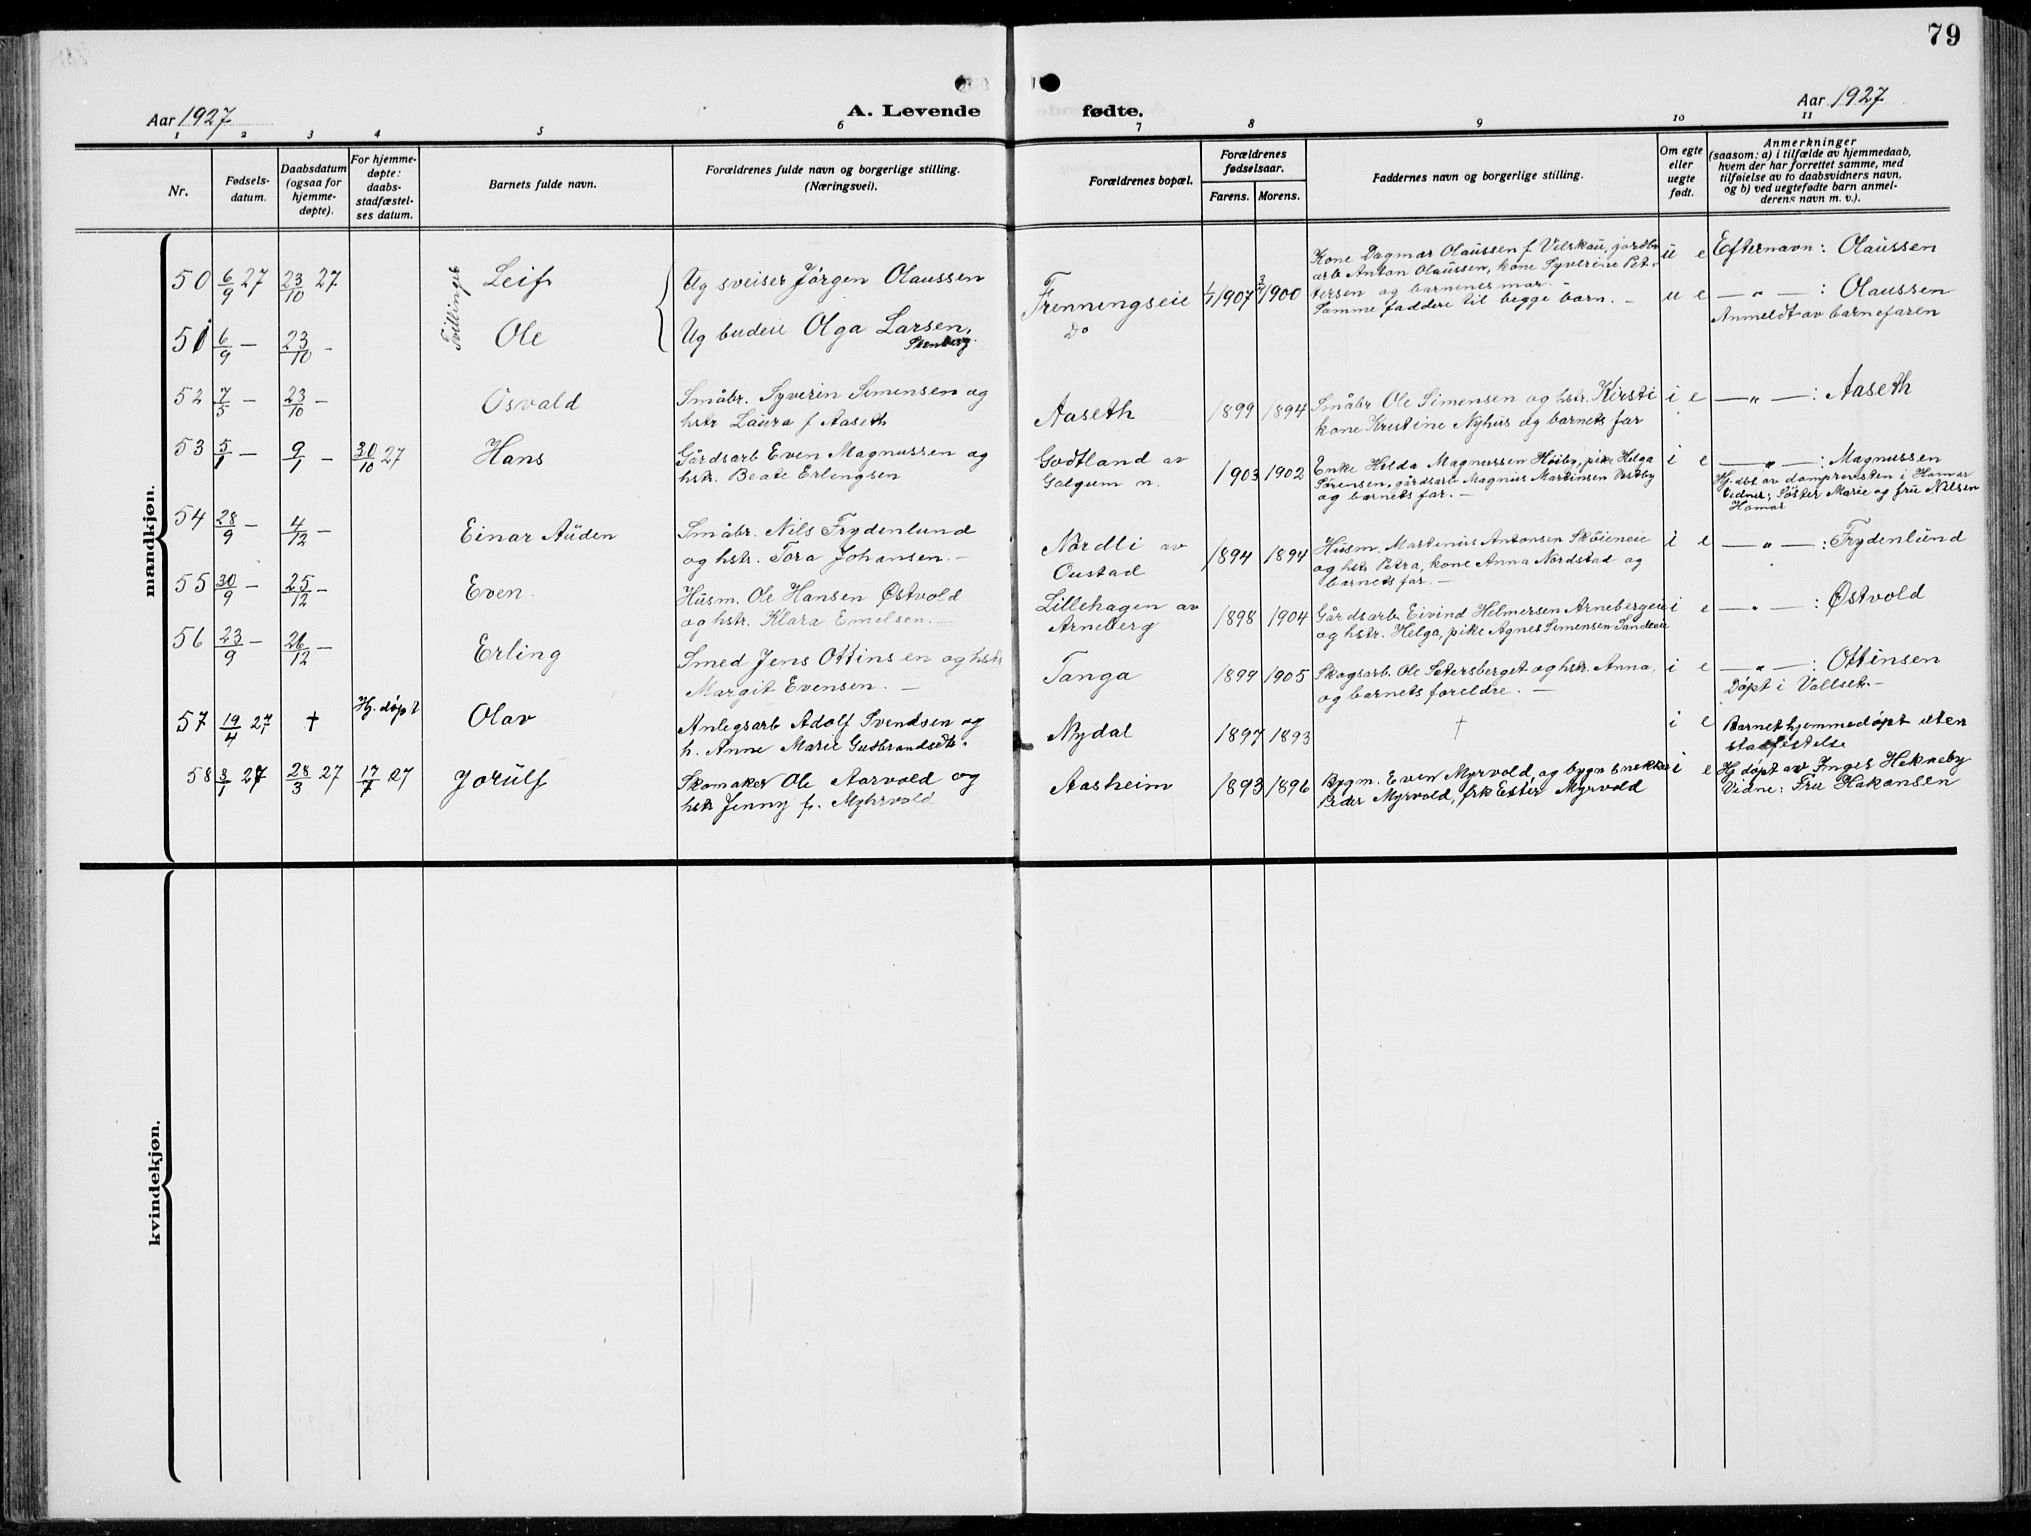 79
Aar 1927
A. Levende fødte.
Aar 1927
1 2 3 4 5 6 7 8 9 10 11
Nr.
Fødsels-
datum.
Daabsdatum
(ogsaa for
hjemme-
døpte).
For hjemme-
døpte:
daabs-
stadfæstel-
ses datum.
Barnets fulde navn.
Forældrenes fulde navn og borgerlige stilling.
(Næringsvei).
Forældrenes bopæl.
Forældrenes
fødselsaar.
Farens. Morens.
Faddernes navn og borgerlige stilling.
Om egte
eller
uegte
født.
Anmerkninger
(saasom: a) i tilfælde av hjemmedaab,
hvem der har forrettet samme, med
tilføielse av to daabsvidners navn,
og b) ved uegtefødte barn anmel-
derens navn m. v.).
mandkjøn.
Tvillinger
50 6/9 27 23/10 27 Leif Ug sveiser Jörgen Olaussen
Frenningseie 1/7 1907 1900
Kone Dagmar Olaussen f Velskau, jordbr
arb Anton Olaussen, kone Syverine Pet-
tersen og barnenes mor. -
Samme faddere til begge barn. -
u e Efternavn: Olaussen
51 6/9 — 23/10 - Ole Ug budeie Olga Larsen,
Stenberg.
Do
u e — " — : Olaussen
Anmeldt av barnefaren
52 7/5 — 23/10 — Osvald Småbr. Syverin Simensen og
hstr Laura f Aaseth
Aaseth 1899 1894 Småbr Ole Simensen og hstr. Kirsti
kone Kristine Nyhus og barnets far
i e — " — : Aaseth
53 5/1 — 9/1 — 30/10 27 Hans Gårdsarb Even Magnussen og
hstr. Beate Erlengsen
Godtland av
Galgum n. 1903 1902
Enke Hilda Magnussen Höiby, pike Helga
Sørensen, gårdsarb Magnus Martinsen Vestby
og barnets far. —
i e — " — : Magnussen
Hj. dbt av domprovsten i Hamar
Vidner: Söster Marie og fru Nilsen
Hamar
54 28/9 — 4/12 — Einar Auden Småbr. Nils Frydenlund
og hstr. Tora Johansen. —
Nordli av
Oustad 1894 1894
Husm. Martinus Antonsen Sköieneie
og hstr Petra, kone Anna Nordstad og
barnets far. —
i e — " — : Frydenlund
55 30/9 — 25/12 — Even. Husm. Ole Hansen Østvold
og hstr. Klara Emelsen. —
Lillehagen av
Arneberg 1898 1904
Gårdsarb. Eivind Helmersen Arnebergeie
og hstr. Helga, pike Agnes Simensen Sandeeie
i e — " — : Østvold
56 23/9 — 26/12 — Erling Smed Jens Ottinsen og hstr
Margit Evensen. —
Tanga 1899 1905 Skogsarb. Ole Setersberget og hstr. Anna,
og barnets foreldre. —
i e — " — : Ottinsen
Döpt i Vallset.—
57 19/4 27 † Hj. döpt Olav Anlegsarb Adolf Svendsen og
h. Anne Marie Gudbrandsdtr.
Nydal 1897 1893 †
i e Barnet hjemmedöpt uten
stadfestelse
58 3/1 27 28/3 27 17/7 27 Jorulf Skomaker Ole Aarvold og
hstr Jenny f. Myhrvold
Aasheim 1893 1896 Bygm. Even Myrvold, og bygm snekker
Peder Myrvold, frk Ester Myrvold
i e Hj döpt av Inger Hekneby
Vidne: Fru Hakansen
kvindekjøn.